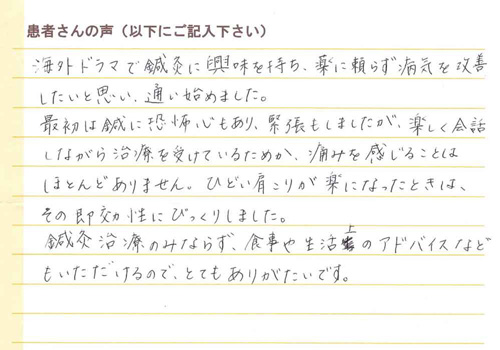 患者さんの声（以下にご記入下さい）
海外ドラマで鍼灸に興味を持ち、薬に頼らず病気を改善
したいと思い、通い始めました。
最初は鍼に恐怖心もあり、緊張もしましたが、楽しく会話
しながら治療を受けているためか、痛みを感じることは
ほとんどありません。ひどい肩こりが楽になったときは、
その即効性にびっくりしました。
鍼灸治療のみならず、食事や生活上のアドバイスなど
もいただけるので、とてもありがたいです。